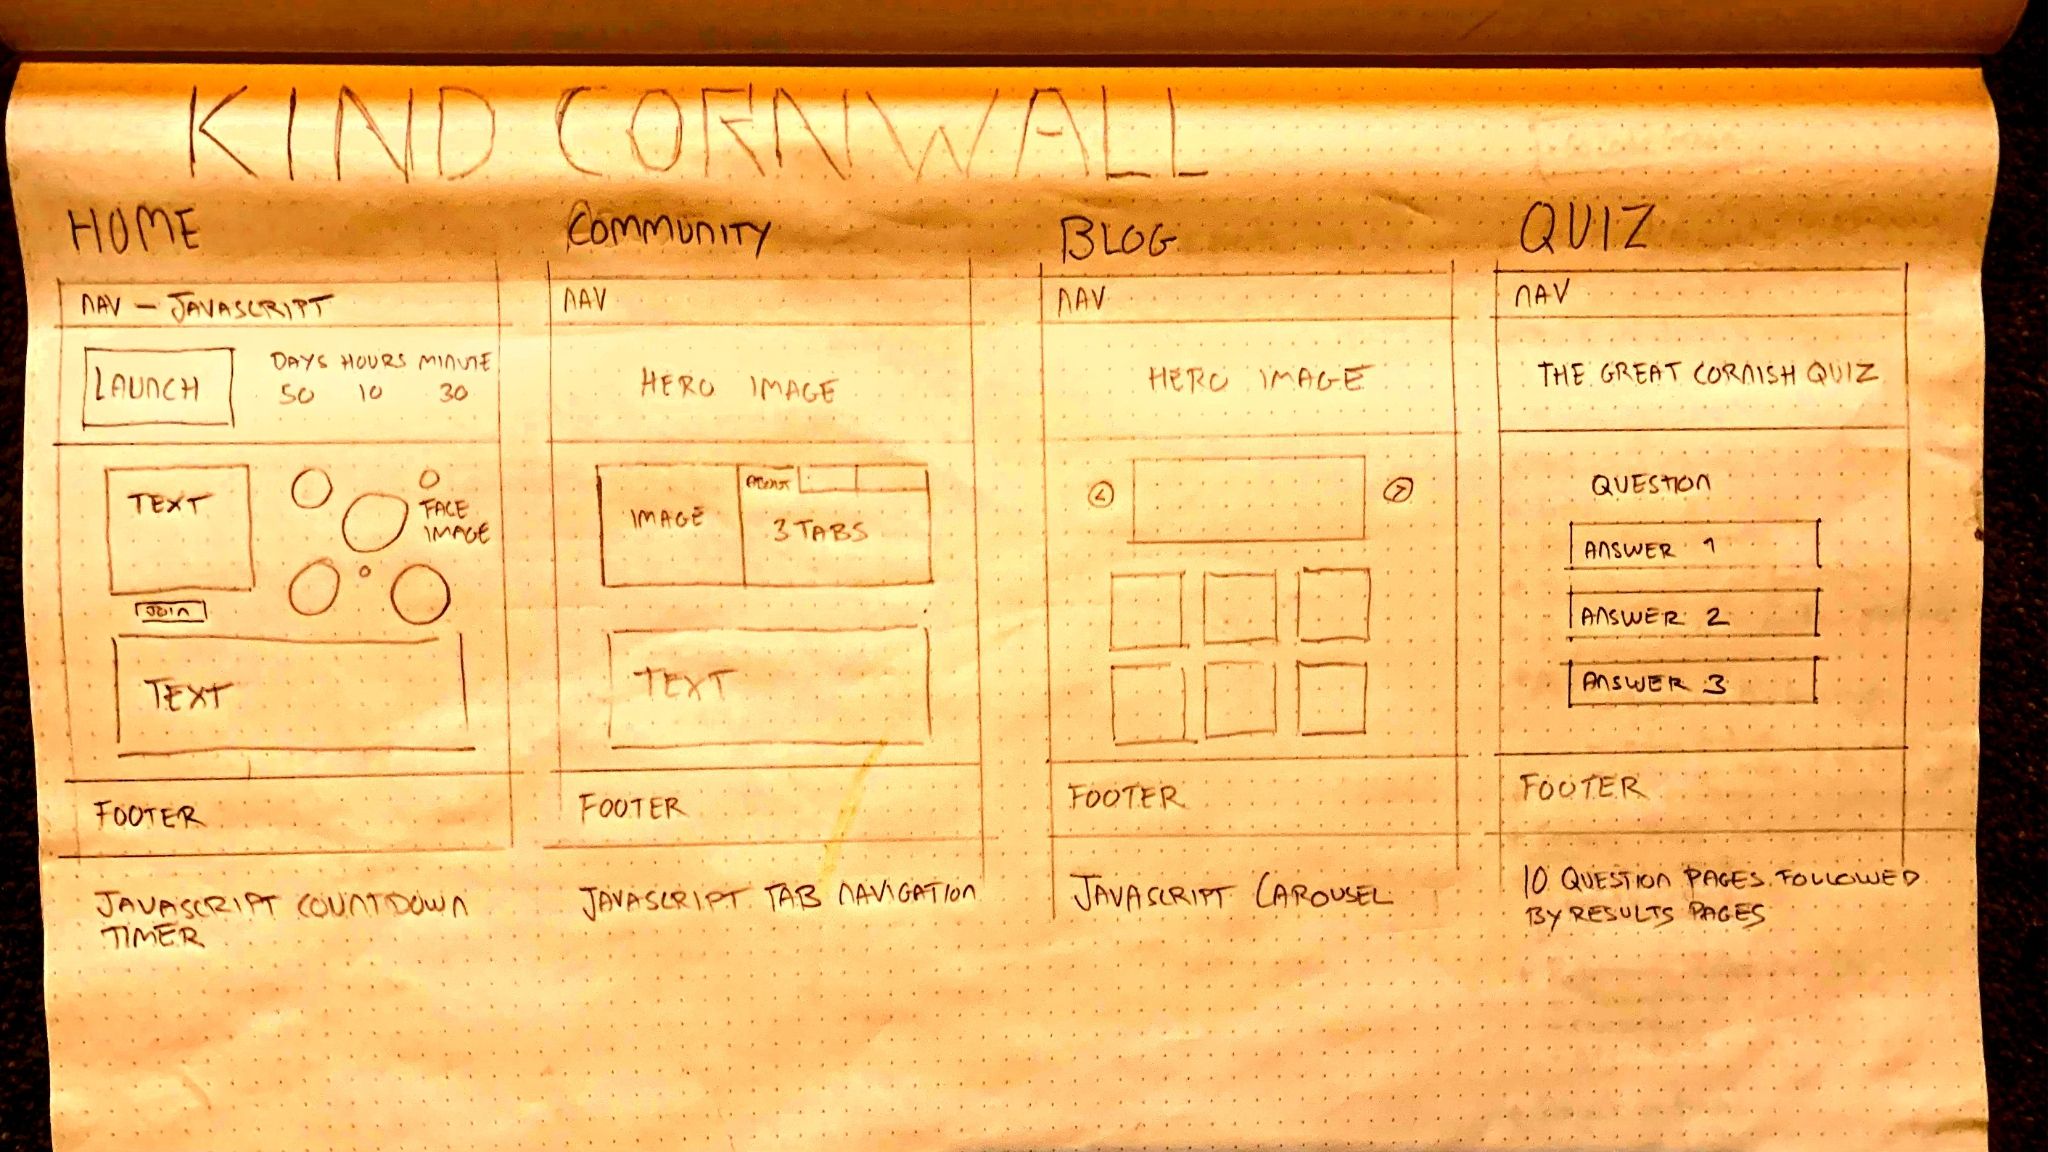 KIND CORNWALL
HOME
NAV - JAVASCRIPT
LAUNCH
DAYS HOURS MINUTE
50 10 30
TEXT
FACE
IMAGE
JOIN
TEXT
FOOTER
JAVASCRIPT COUNTDOWN
TIMER
COMMUNITY
NAV
HERO IMAGE
IMAGE
ABOUT
3 TABS
TEXT
FOOTER
JAVASCRIPT TAB NAVIGATION
BLOG
NAV
HERO IMAGE
<
>
FOOTER
JAVASCRIPT CAROUSEL
QUIZ
NAV
THE GREAT CORNISH QUIZ
QUESTION
ANSWER 1
ANSWER 2
ANSWER 3
FOOTER
10 QUESTION PAGES FOLLOWED
BY RESULTS PAGES